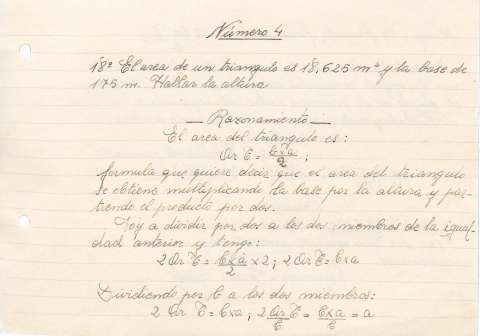 Número 4
18º El area de un triangulo es 18,625 m² y la base de
175 m. Hallar la altura
— Razonamiento —
El area del triangulo es:
Ar T = b x a / 2 ;
formula que quiere decir que el area del triangulo
se obtiene multiplicando la base por la altura y par-
tiendo el producto por dos.
Voy a dividir por dos a los dos miembros de la igual-
dad anterior y tengo:
2 Ar T = b x a / 2 x 2 ; 2 Ar T = b x a
Dividiendo por b a los dos miembros:
2 Ar T = b x a ; 2 Ar T / b = b x a / b = a